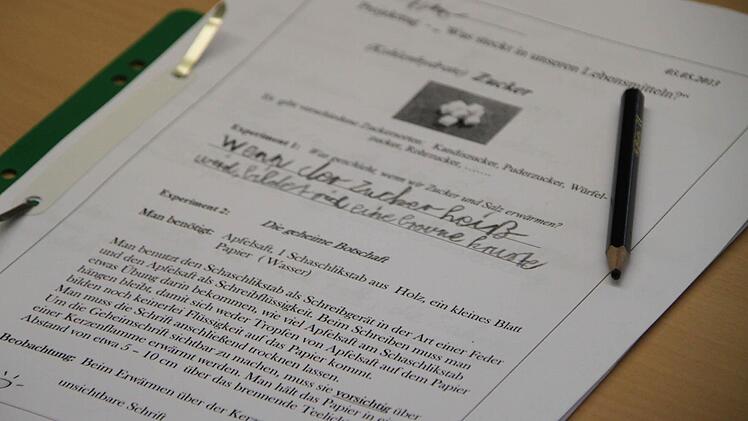 Projekttag - „Was steckt in unseren Lebensmitteln?“ 03.05.2013
(Kohlenhydrate) Zucker
Es gibt verschiedene Zuckersorten: Kandiszucker, Puderzucker, Würfel-
zucker, Rohrzucker, .......
Experiment 1: Was geschieht, wenn wir Zucker und Salz erwärmen?
Wenn der Zucker heiß
wird, bildet sich eine braune kruste
Experiment 2: Die geheime Botschaft
Man benötigt: Apfelsaft, 1 Schaschlikstab aus Holz, ein kleines Blatt
Papier (Wasser)
Man benutzt den Schaschlikstab als Schreibgerät in der Art einer Feder
und den Apfelsaft als Schreibflüssigkeit. Beim Schreiben muss man
etwas Übung darin bekommen, wie viel Apfelsaft am Schaschlikstab
hängen bleibt, damit sich weder Tropfen von Apfelsaft auf dem Papier
bilden noch keinerlei Flüssigkeit auf das Papier kommt.
Man muss die Schrift anschließend trocknen lassen.
Um die Geheimschrift sichtbar zu machen, muss sie vorsichtig über
einer Kerzenflamme erwärmt werden. Man hält das Papier in ei
Abstand von etwa 5 - 10 cm über das brennende Teelich
Beobachtung: Beim Erwärmen über der Kerz
unsichtbare Schrift